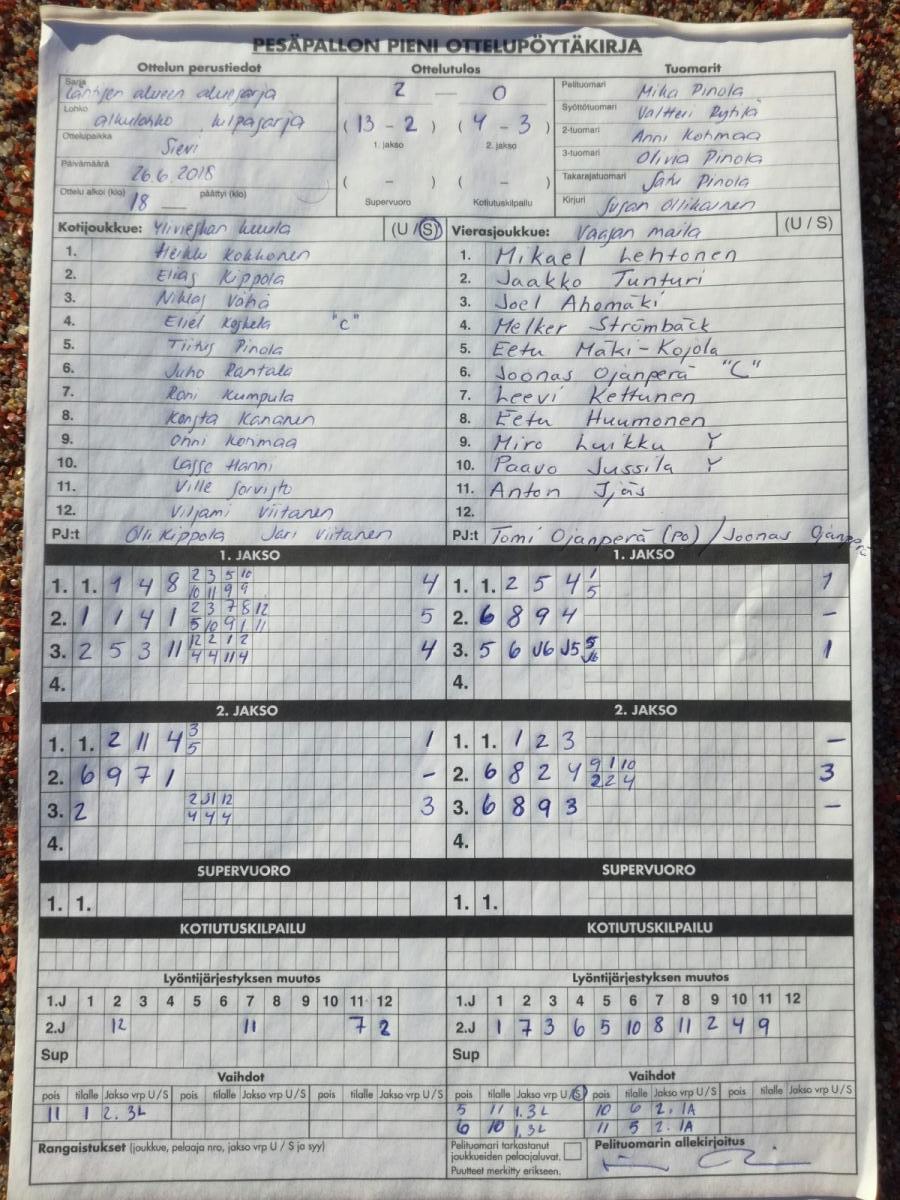 PESÄPALLON PIENI OTTELUPÖYTÄKIRJA
Ottelun perustiedot Ottelutulos Tuomarit
Sarja alueen aluesarja 2 — 0 Pelituomari Mika Pinola
Lohko alkulohko kilpasarja (13 - 2) (4 - 3) Syöttötuomari Valtteri
1. jakso 2. jakso 2-tuomari Anni Kohmaa
Ottelupaikka Sievi 3-tuomari Olivia Pinola
Päivämäärä 26.6.2018 ( - ) ( - ) Takarajatuomari Satu Pinola
Ottelu alkoi (klo) 18 päättyi (klo) Supervuoro Kotiutuskilpailu Kirjuri Susan Ollikainen
Kotijoukkue: Ylivieskan kuula (U / S) Vierasjoukkue: Vaajan maila (U / S)
1. Heikki Kokkonen 1. Mikael Lehtonen
2. Elias Kippola 2. Jaakko Tunturi
3. Niklas Vähä 3. Joel Ahomäki
4. Eliel Koskela "C" 4. Melker Strömbäck
5. Tiitus Pinola 5. Eetu Mäki-Kojola
6. Juho Rantala 6. Joonas Ojanperä "C"
7. Roni Kumpula 7. Leevi Kettunen
8. Konsta Kananen 8. Eetu Huumonen
9. Onni Kohmaa 9. Miro Luikku Y
10. Lasse Hanni 10. Paavo Jussila Y
11. Ville Sorvisto 11. Anton Ijäs
12. Viljami Viitanen 12.
PJ:t Olli Kippola Jari Viitanen PJ:t Tomi Ojanperä (PO) / Joonas Ojanperä
1. JAKSO 1. JAKSO
1. 1. 1 4 8 2 3 5 10 4 1. 1. 2 5 4 1 1
10 11 9 9 5
2. 1 1 4 1 2 3 7 8 12 5 2. 6 8 9 4 -
5 10 9 1 11
3. 2 5 3 11 12 2 1 2 4 3. 5 6 J6 J5 5 1
4 4 11 4 J6
4. 4.
2. JAKSO 2. JAKSO
1. 1. 2 11 4 3 1 1. 1. 1 2 3 -
5
2. 6 9 7 1 - 2. 6 8 2 4 9 1 10 3
2 2 4
3. 2 2 J1 12 3 3. 6 8 9 3 -
4 4 4
4. 4.
SUPERVUORO SUPERVUORO
1. 1. 1. 1.
KOTIUTUSKILPAILU KOTIUTUSKILPAILU
Lyöntijärjestyksen muutos Lyöntijärjestyksen muutos
1.J 1 2 3 4 5 6 7 8 9 10 11 12 1.J 1 2 3 4 5 6 7 8 9 10 11 12
2.J 12 11 7 2 2.J 1 7 3 6 5 10 8 11 2 4 9
Sup Sup
Vaihdot Vaihdot
pois tilalle Jakso vrp U / S pois tilalle Jakso vrp U / S pois tilalle Jakso vrp U / S pois tilalle Jakso vrp U / S pois tilalle Jakso vrp U / S pois tilalle Jakso vrp U / S
11 1 2. 3L 5 11 1.3L 10 6 2. 1A
6 10 1.3L 11 5 2. 1A
Rangaistukset (joukkue, pelaaja nro, jakso vrp U / S ja syy) Pelituomari tarkastanut Pelituomarin allekirjoitus
joukkueiden pelaajaluvat.
Puutteet merkitty erikseen.